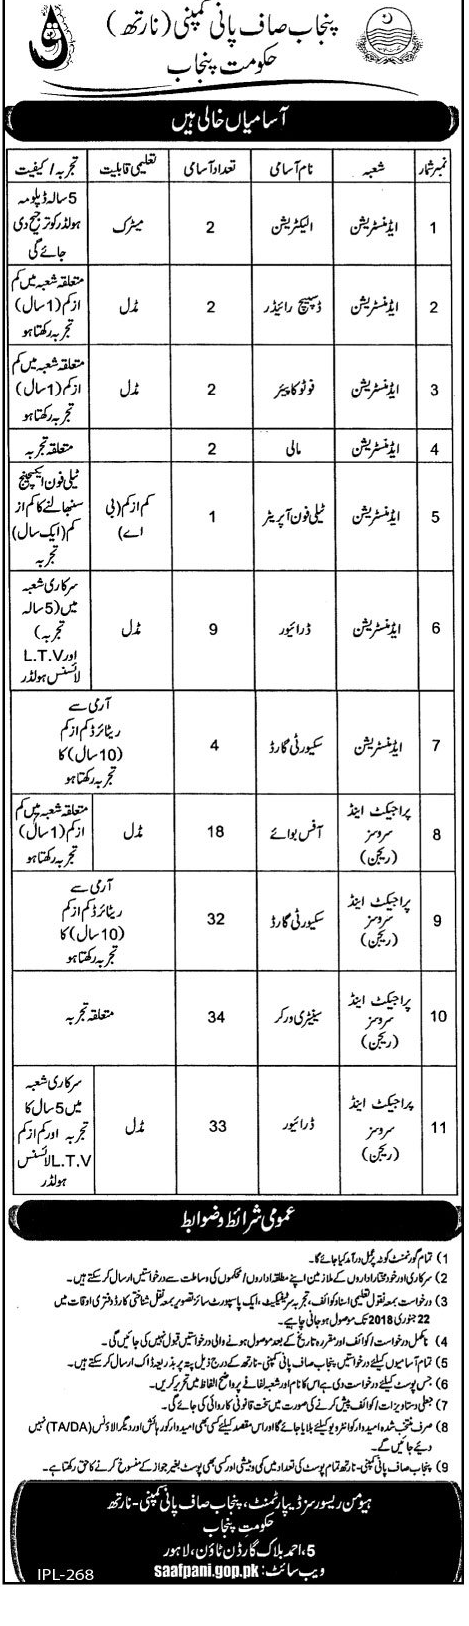 پنجاب صاف پانی کمپنی (نارتھ)
حکومت پنجاب
آسامیاں خالی ہیں
نمبر شمار | شعبہ | نام آسامی | تعداد آسامی | تعلیمی قابلیت | تجربہ / کیفیت
1 | ایڈمنسٹریشن | الیکٹریشن | 2 | میٹرک | 5 سالہ ڈپلومہ ہولڈر کو ترجیح دی جائے گی
2 | ایڈمنسٹریشن | ڈسپیچ رائیڈر | 2 | مڈل | متعلقہ شعبہ میں کم از کم (1 سال) تجربہ رکھتا ہو
3 | ایڈمنسٹریشن | فوٹو کاپیئر | 2 | مڈل | متعلقہ شعبہ میں کم از کم (1 سال) تجربہ رکھتا ہو
4 | ایڈمنسٹریشن | مالی | 2 | متعلقہ تجربہ
5 | ایڈمنسٹریشن | ٹیلی فون آپریٹر | 1 | کم از کم (بی اے) | ٹیلی فون ایکسچینج سنبھالنے کا کم از کم (ایک سال) تجربہ
6 | ایڈمنسٹریشن | ڈرائیور | 9 | مڈل | سرکاری شعبہ میں (5 سالہ تجربہ) اور L.T.V لائسنس ہولڈر
7 | ایڈمنسٹریشن | سکیورٹی گارڈ | 4 | آرمی سے ریٹائرڈ کم از کم (10 سال) کا تجربہ رکھتا ہو
8 | پراجیکٹ اینڈ سروسز (ریجن) | آفس بوائے | 18 | مڈل | متعلقہ شعبہ میں کم از کم (1 سال) تجربہ رکھتا ہو
9 | پراجیکٹ اینڈ سروسز (ریجن) | سکیورٹی گارڈ | 32 | آرمی سے ریٹائرڈ کم از کم (10 سال) کا تجربہ رکھتا ہو
10 | پراجیکٹ اینڈ سروسز (ریجن) | سینٹری ورکر | 34 | متعلقہ تجربہ
11 | پراجیکٹ اینڈ سروسز (ریجن) | ڈرائیور | 33 | مڈل | سرکاری شعبہ میں 5 سال کا تجربہ اور کم از کم L.T.V لائسنس ہولڈر
عمومی شرائط و ضوابط
1) تمام گورنمنٹ کوٹہ پر عمل درآمد کیا جائے گا۔
2) سرکاری اور خودمختار اداروں کے ملازمین اپنے متعلقہ اداروں / محکموں کی وساطت سے درخواستیں ارسال کر سکتے ہیں۔
3) درخواست بمعہ نقول تعلیمی اسناد کوائف، تجربہ سرٹیفکیٹ، ایک پاسپورٹ سائز تصویر بمعہ نقل شناختی کارڈ دفتری اوقات میں
22 جنوری 2018 تک موصول ہو جانی چاہیے۔
4) نامکمل درخواست / کوائف اور مقررہ تاریخ کے بعد موصول ہونے والی درخواستیں قبول نہیں کی جائیں گی۔
5) تمام آسامیوں کیلئے درخواستیں پنجاب صاف پانی کمپنی-نارتھ کے درج ذیل پتہ پر بذریعہ ڈاک ارسال کر سکتے ہیں۔
6) جس پوسٹ کیلئے درخواست دی ہے اس کا نام اور شعبہ لفافے پر واضح الفاظ میں تحریر کریں۔
7) جعلی دستاویزات / کوائف پیش کرنے کی صورت میں سخت قانونی کاروائی کی جائے گی۔
8) صرف منتخب شدہ امیدوار کو انٹرویو کیلئے بلایا جائے گا اور اس مقصد کیلئے کسی بھی امیدوار کو رہائش اور دیگر الاؤنس (TA/DA) نہیں
دیئے جائیں گے۔
9) پنجاب صاف پانی کمپنی-نارتھ تمام پوسٹ کی تعداد میں کمی و بیشی اور کسی بھی پوسٹ بغیر جواز کے منسوخ کرنے کا حق رکھتا ہے۔
ہیومن ریسورسز ڈیپارٹمنٹ، پنجاب صاف پانی کمپنی-نارتھ
حکومت پنجاب
5، احمد بلاک گارڈن ٹاؤن، لاہور
ویب سائٹ: saafpani.gop.pk
IPL-268